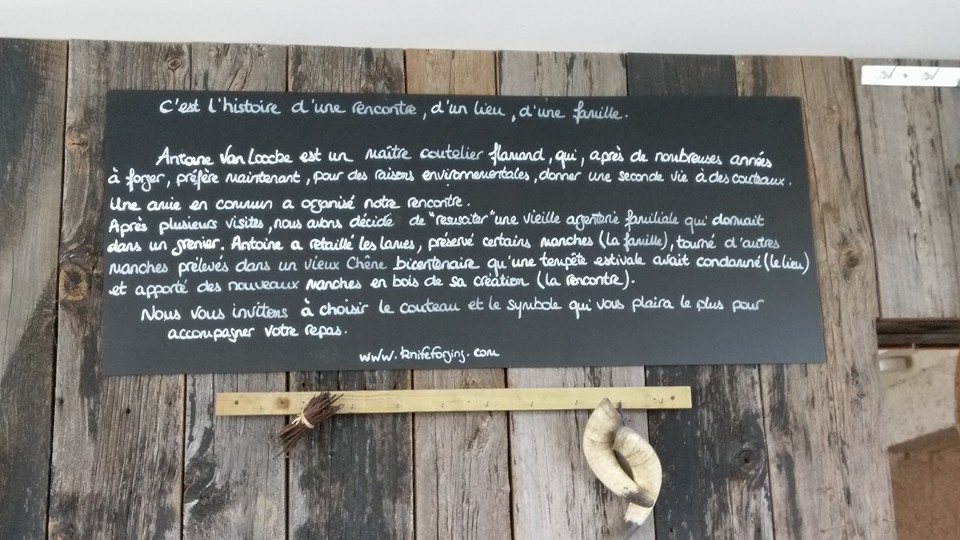 C'est l'histoire d'une rencontre, d'un lieu, d'une famille.
Antoine Van Loocke est un maître coutelier flamand, qui, après de nombreuses années
à forger, préfère maintenant, pour des raisons environnementales, donner une seconde vie à des couteaux.
Une amie en commun a organisé notre rencontre.
Après plusieurs visites, nous avons décidé de "resusciter" une vieille argenterie familiale qui dormait
dans un grenier. Antoine a retaillé les lames, préservé certains manches (la famille), tourné d'autres
manches prélevés dans un vieux Chêne bicentenaire qu'une tempête estivale avait condamné (le lieu)
et apporté des nouveaux manches en bois de sa création (la rencontre).
Nous vous invitons à choisir le couteau et le symbole qui vous plaira le plus pour
accompagner votre repas.
www.knifeforging.com